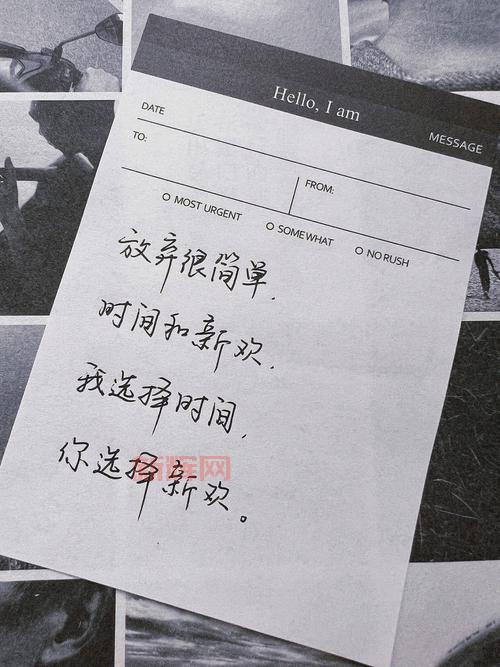 Hello, I am
MESSAGE
DATE
TO:
FROM:
MOST URGENT
SOMEWHAT
NO RUSH
放弃很简单,
时间和新欢,
我选择时间,
你选择新欢。
新辉网